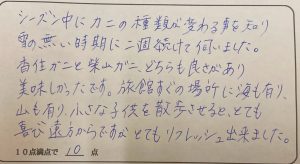 シーズン中にカニの種類が変わる事を知り
雪の無い時期に二個続けて伺いました。
香住ガニと柴山ガニ、どちらも良さがあり
美味しかったです。旅館すぐの場所に海も有り、
山も有り、小さな子供を散歩させると、とても
喜び遠方からですがとてもリフレッシュ出来ました。
10点満点で 10 点